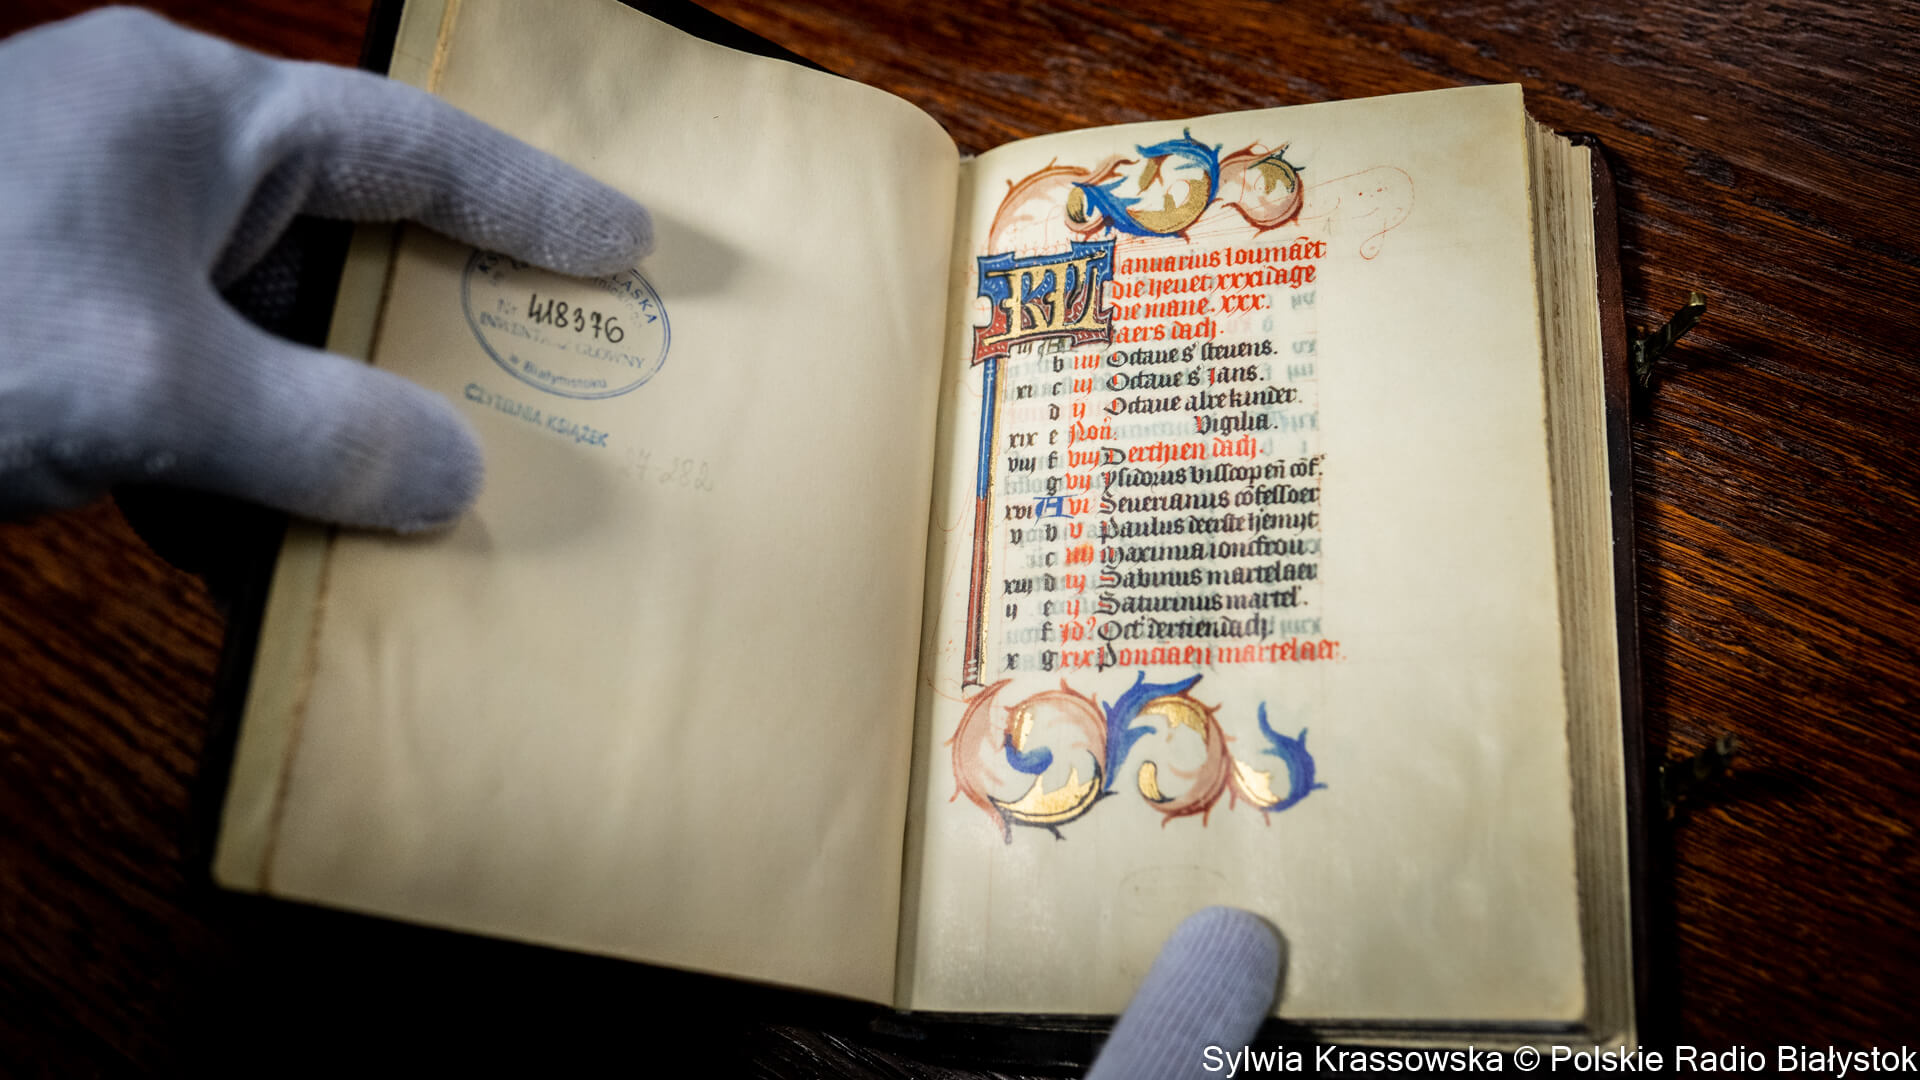 418376
INWENTARZ GŁÓWNY
Białymstoku
CZYTELNIA KSIĄŻEK
27-282
KL
Januarius loumaēt
die heuet xxxi dage
die mane. xxx.
iaers dach.
b iiij Octaue sˀ steuens.
xi c iij Octaue sˀ Jans.
d ij Octaue alre kinder.
xix e Non̄. Vigilia.
viij f viij Derthien dach.
g vij Ysidorus bisscop en̄ cōf.
xvi A vi Seuerianus cōfessoer
v b v Paulus deerste hemijt
c iiij Maxima ioncfrou
xiij d iij Sabinus martelaer
ij e ij Saturinus martel'.
f Jdˀ Oct' dertiendach.
x g xix Ponciaen martelaer.
Sylwia Krassowska © Polskie Radio Białystok